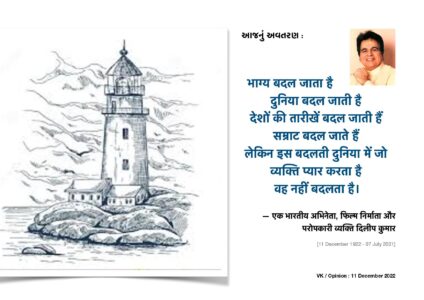 આજનું અવતરણ :
भाग्य बदल जाता है
दुनिया बदल जाती है
देशों की तारीखें बदल जाती हैं
सम्राट बदल जाते हैं
लेकिन इस बदलती दुनिया में जो
व्यक्ति प्यार करता है
वह नहीं बदलता है।
– एक भारतीय अभिनेता, फिल्म निर्माता और
परोपकारी व्यक्ति दिलीप कुमार
[11 December 1922 - 07 July 2021]
VK / Opinion : 11 December 2022